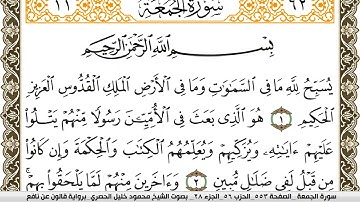 ١١ سُورَةُ الجُمُعَةِ ٦٢
بِسْمِ اللَّهِ الرَّحْمَٰنِ الرَّحِيمِ
يُسَبِّحُ لِلَّهِ مَا فِي السَّمَٰوَٰتِ وَمَا فِي الْأَرْضِ الْمَلِكِ الْقُدُّوسِ الْعَزِيزِ
الْحَكِيمِ ١ هُوَ الَّذِي بَعَثَ فِي الْأُمِّيِّـنَ رَسُولًا مِّنْهُمْ يَتْلُوا
عَلَيْهِمْ ءَايَٰتِهِۦ وَيُزَكِّيهِمْ وَيُعَلِّمُهُمُ الْكِتَٰبَ وَالْحِكْمَةَ وَإِن كَانُوا
مِن قَبْلُ لَفِي ضَلَٰلٍ مُّبِينٍ ٢ وَءَاخَرِينَ مِنْهُمْ لَمَّا يَلْحَقُوا بِهِمْ
سورة الجمعة الصفحة ٥٥٣ الحزب ٥٦ الجزء ٢٨ بصوت الشيخ محمود خليل الحصري برواية قالون عن نافع